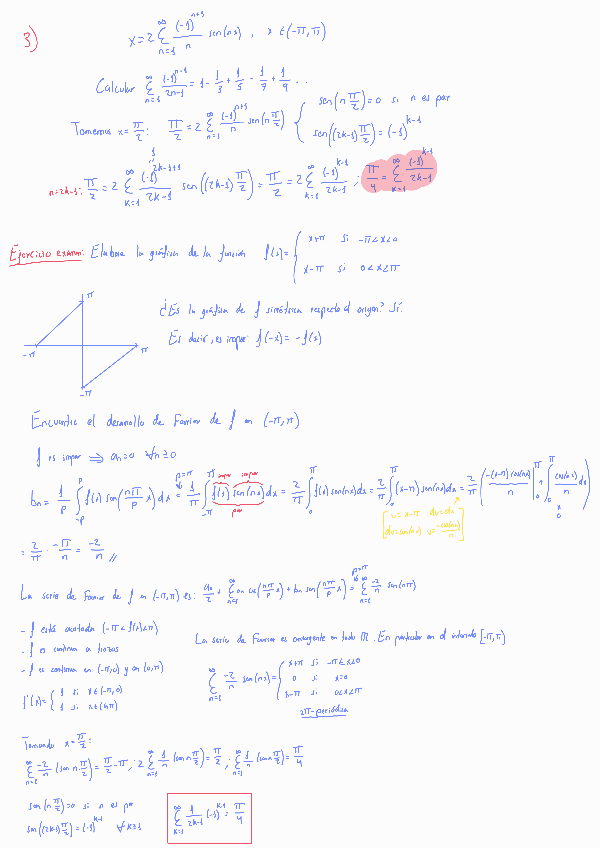 3) x = 2 ∑_{n=1}^{∞} (-1)^{n+1}/n sen(nx) , x ∈ (-π, π)
Calcular ∑_{n=1}^{∞} (-1)^{n-1}/(2n-1) = 1 - 1/3 + 1/5 - 1/7 + 1/9 ...
Tomemos x = π/2 : π/2 = 2 ∑_{n=1}^{∞} (-1)^{n+1}/n sen(n π/2) { sen(n π/2) = 0 si n es par
sen((2k-1) π/2) = (-1)^{k-1}
n=2k-1: π/2 = 2 ∑_{k=1}^{∞} (-1)^{2k-1+1}/(2k-1) sen((2k-1) π/2) = π/2 = 2 ∑_{k=1}^{∞} (-1)^{k-1}/(2k-1) ; π/4 = ∑_{k=1}^{∞} (-1)^{k-1}/(2k-1)
1
Ejercicio examen: Elabora la gráfica de la función f(x) = { x+π si -π<x<0
x-π si 0<x<π
π
-π
π
-π
¿Es la gráfica de f simétrica respecto al origen? Sí.
Es decir, es impar: f(-x) = -f(x)
Encuentre el desarrollo de Fourier de f en (-π, π)
f es impar ⟹ a_n = 0 ∀n ≥ 0
b_n = 1/p ∫_{-p}^{p} f(x) sen(nπ/p x) dx = 1/π ∫_{-π}^{π} f(x) sen(nx) dx = 2/π ∫_{0}^{π} f(x) sen(nx) dx = 2/π ∫_{0}^{π} (x-π) sen(nx) dx = 2/π ( -(x-π) cos(nx)/n |_{0}^{π} + ∫_{0}^{π} cos(nx)/n dx )
p=π
impar impar
par
u = x-π du = dx
dv = sen(nx) v = -cos(nx)/n
0
= 2/π · -π/n = -2/n //
La serie de Fourier de f en (-π, π) es: a_0/2 + ∑_{n=1}^{∞} a_n cos(nπ/p x) + b_n sen(nπ/p x) = ∑_{n=1}^{∞} -2/n sen(nx)
p=π
- f está acotada (-π < f(x) < π)
- f es continua a trozos
- f es continua en (-π,0) y en (0,π)
f'(x) = { 1 si x ∈ (-π, 0)
1 si x ∈ (0, π)
La serie de Fourier es convergente en todo ℝ. En particular en el intervalo [-π, π]
∑_{n=1}^{∞} -2/n sen(nx) = { x+π si -π ≤ x < 0
0 si x = 0
x-π si 0 < x ≤ π
2π-periódica
Tomando x = π/2 :
∑_{n=1}^{∞} -2/n (sen n π/2) = π/2 - π ; 2 ∑_{n=1}^{∞} 1/n (sen n π/2) = π/2 ; ∑_{n=1}^{∞} 1/n (sen n π/2) = π/4
sen(n π/2) = 0 si n es par
sen((2k-1) π/2) = (-1)^{k-1} ∀ k ≥ 1
∑_{k=1}^{∞} 1/(2k-1) (-1)^{k-1} = π/4